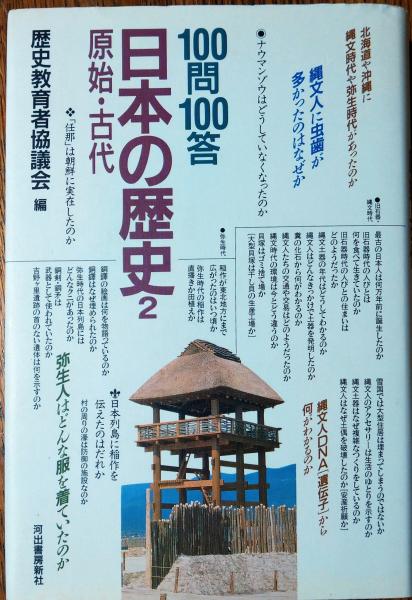 北海道や沖縄に
縄文時代や弥生時代があったのか
縄文人に虫歯が
多かったのはなぜか
●ナウマンゾウはどうしていなくなったのか
100問100答
日本の歴史2
原始・古代
❖「任那」は朝鮮に実在したのか
歴史教育者協議会 編
●旧石器・
縄文時代
最古の日本人は何万年前に誕生したのか
旧石器時代の人びとは
何を食べて生きていたのか
旧石器時代の人びとの住まいは
どのようだったか
縄文土器の年代はどうしてわかるのか
縄文人はどんなきっかけで土器を発明したのか
糞の化石から何がわかるのか
縄文人たちの交通や交易はどのようだったのか
縄文時代の環境は今とどう違うのか
貝塚はゴミ捨て場か
[大型貝塚は干し貝の生産工場か]
雪国では大型住居は埋まってしまうのではないか
縄文人のアクセサリーは生活のゆとりを示すのか
縄文土器はなぜ複雑なつくりをしているのか
縄文人はなぜ土偶を破壊したのか[安産祈願か]
縄文人DNA[遺伝子]から
何がわかるのか
●弥生時代
稲作が東北地方にまで
広がったのはいつ頃か
弥生時代の稲作は
直播きか田植えか
日本列島に稲作を
伝えたのはだれか
村の周りの濠は防御の施設なのか
銅鐸の絵画は何を物語っているのか
銅鐸はなぜ埋められたのか
弥生時代の日本列島には
どんなクニがあったのか
銅剣・銅矛は
武器として使われていたのか
吉野ヶ里遺跡の首のない遺体は何を示すのか
弥生人はどんな服を着ていたのか
河出書房新社